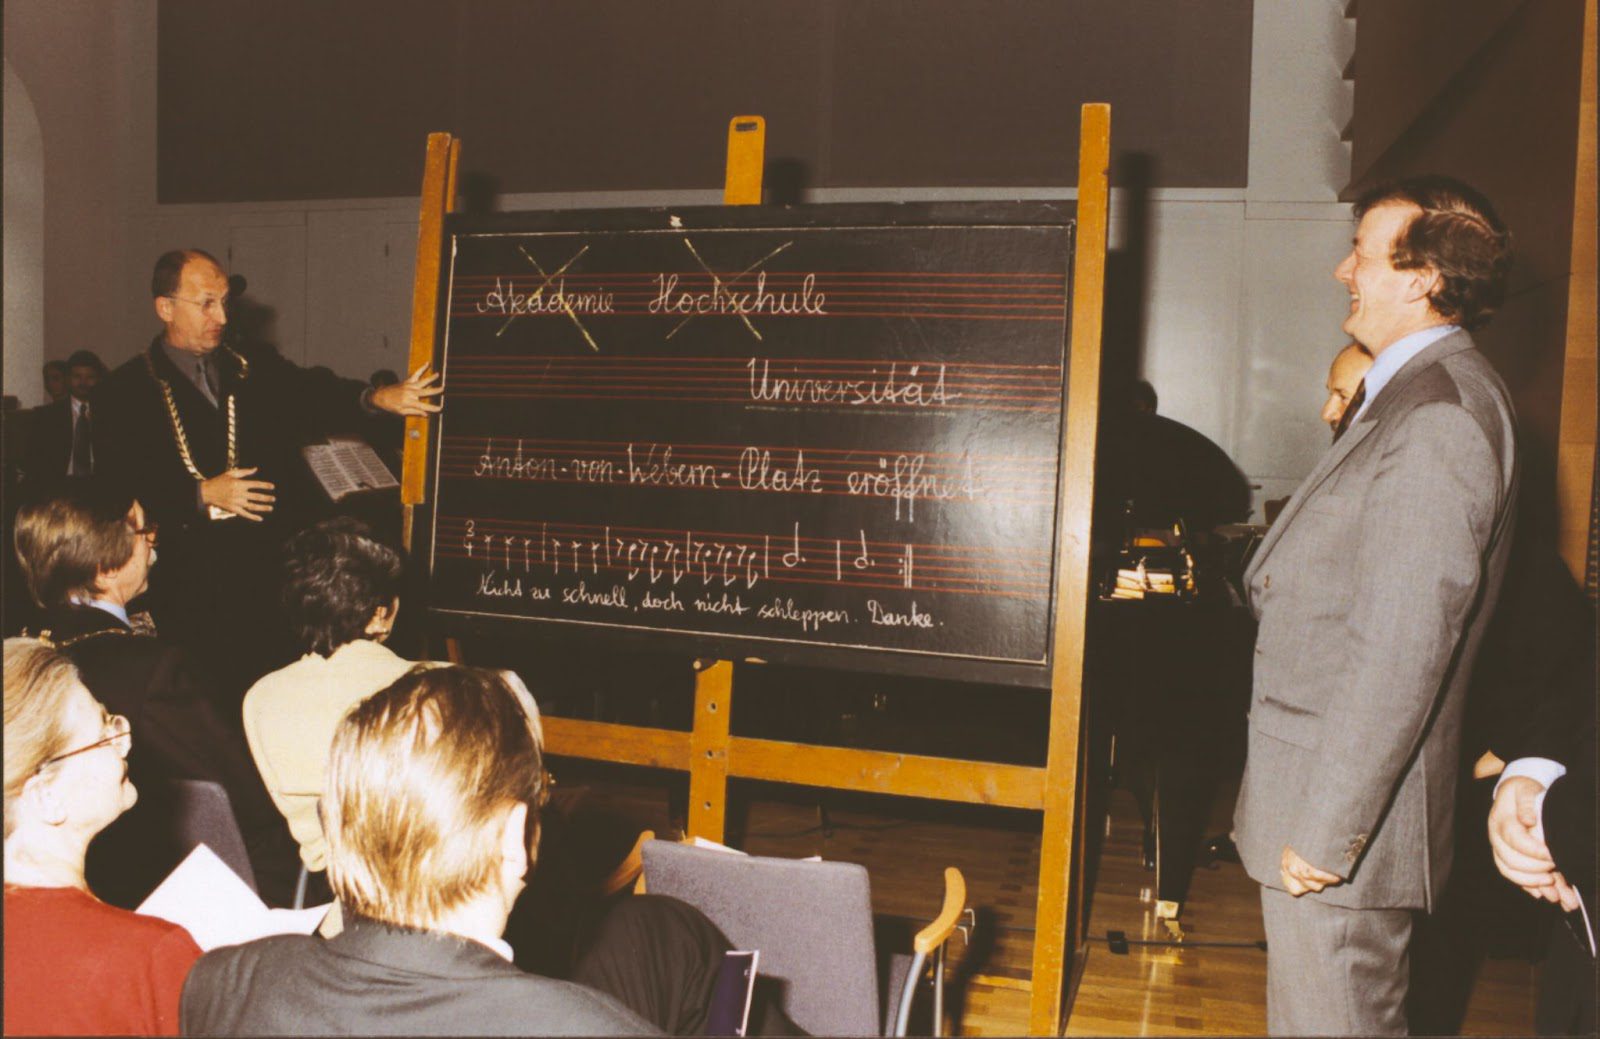 Akademie Hochschule
Universität
Anton-von-Webern-Platz eröffnet
3
4
Nicht zu schnell, doch nicht schleppen. Danke.